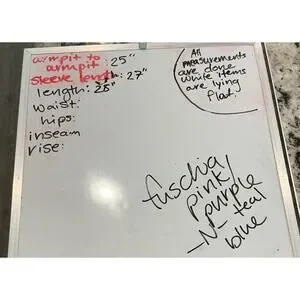 armpit to
armpit : 25"
sleeve length: 27"
length: 28"
waist:
hips:
inseam
rise:
All
measurements
are done
while items
are lying
flat.
fuschia
pink/
purple
-N- teal
blue